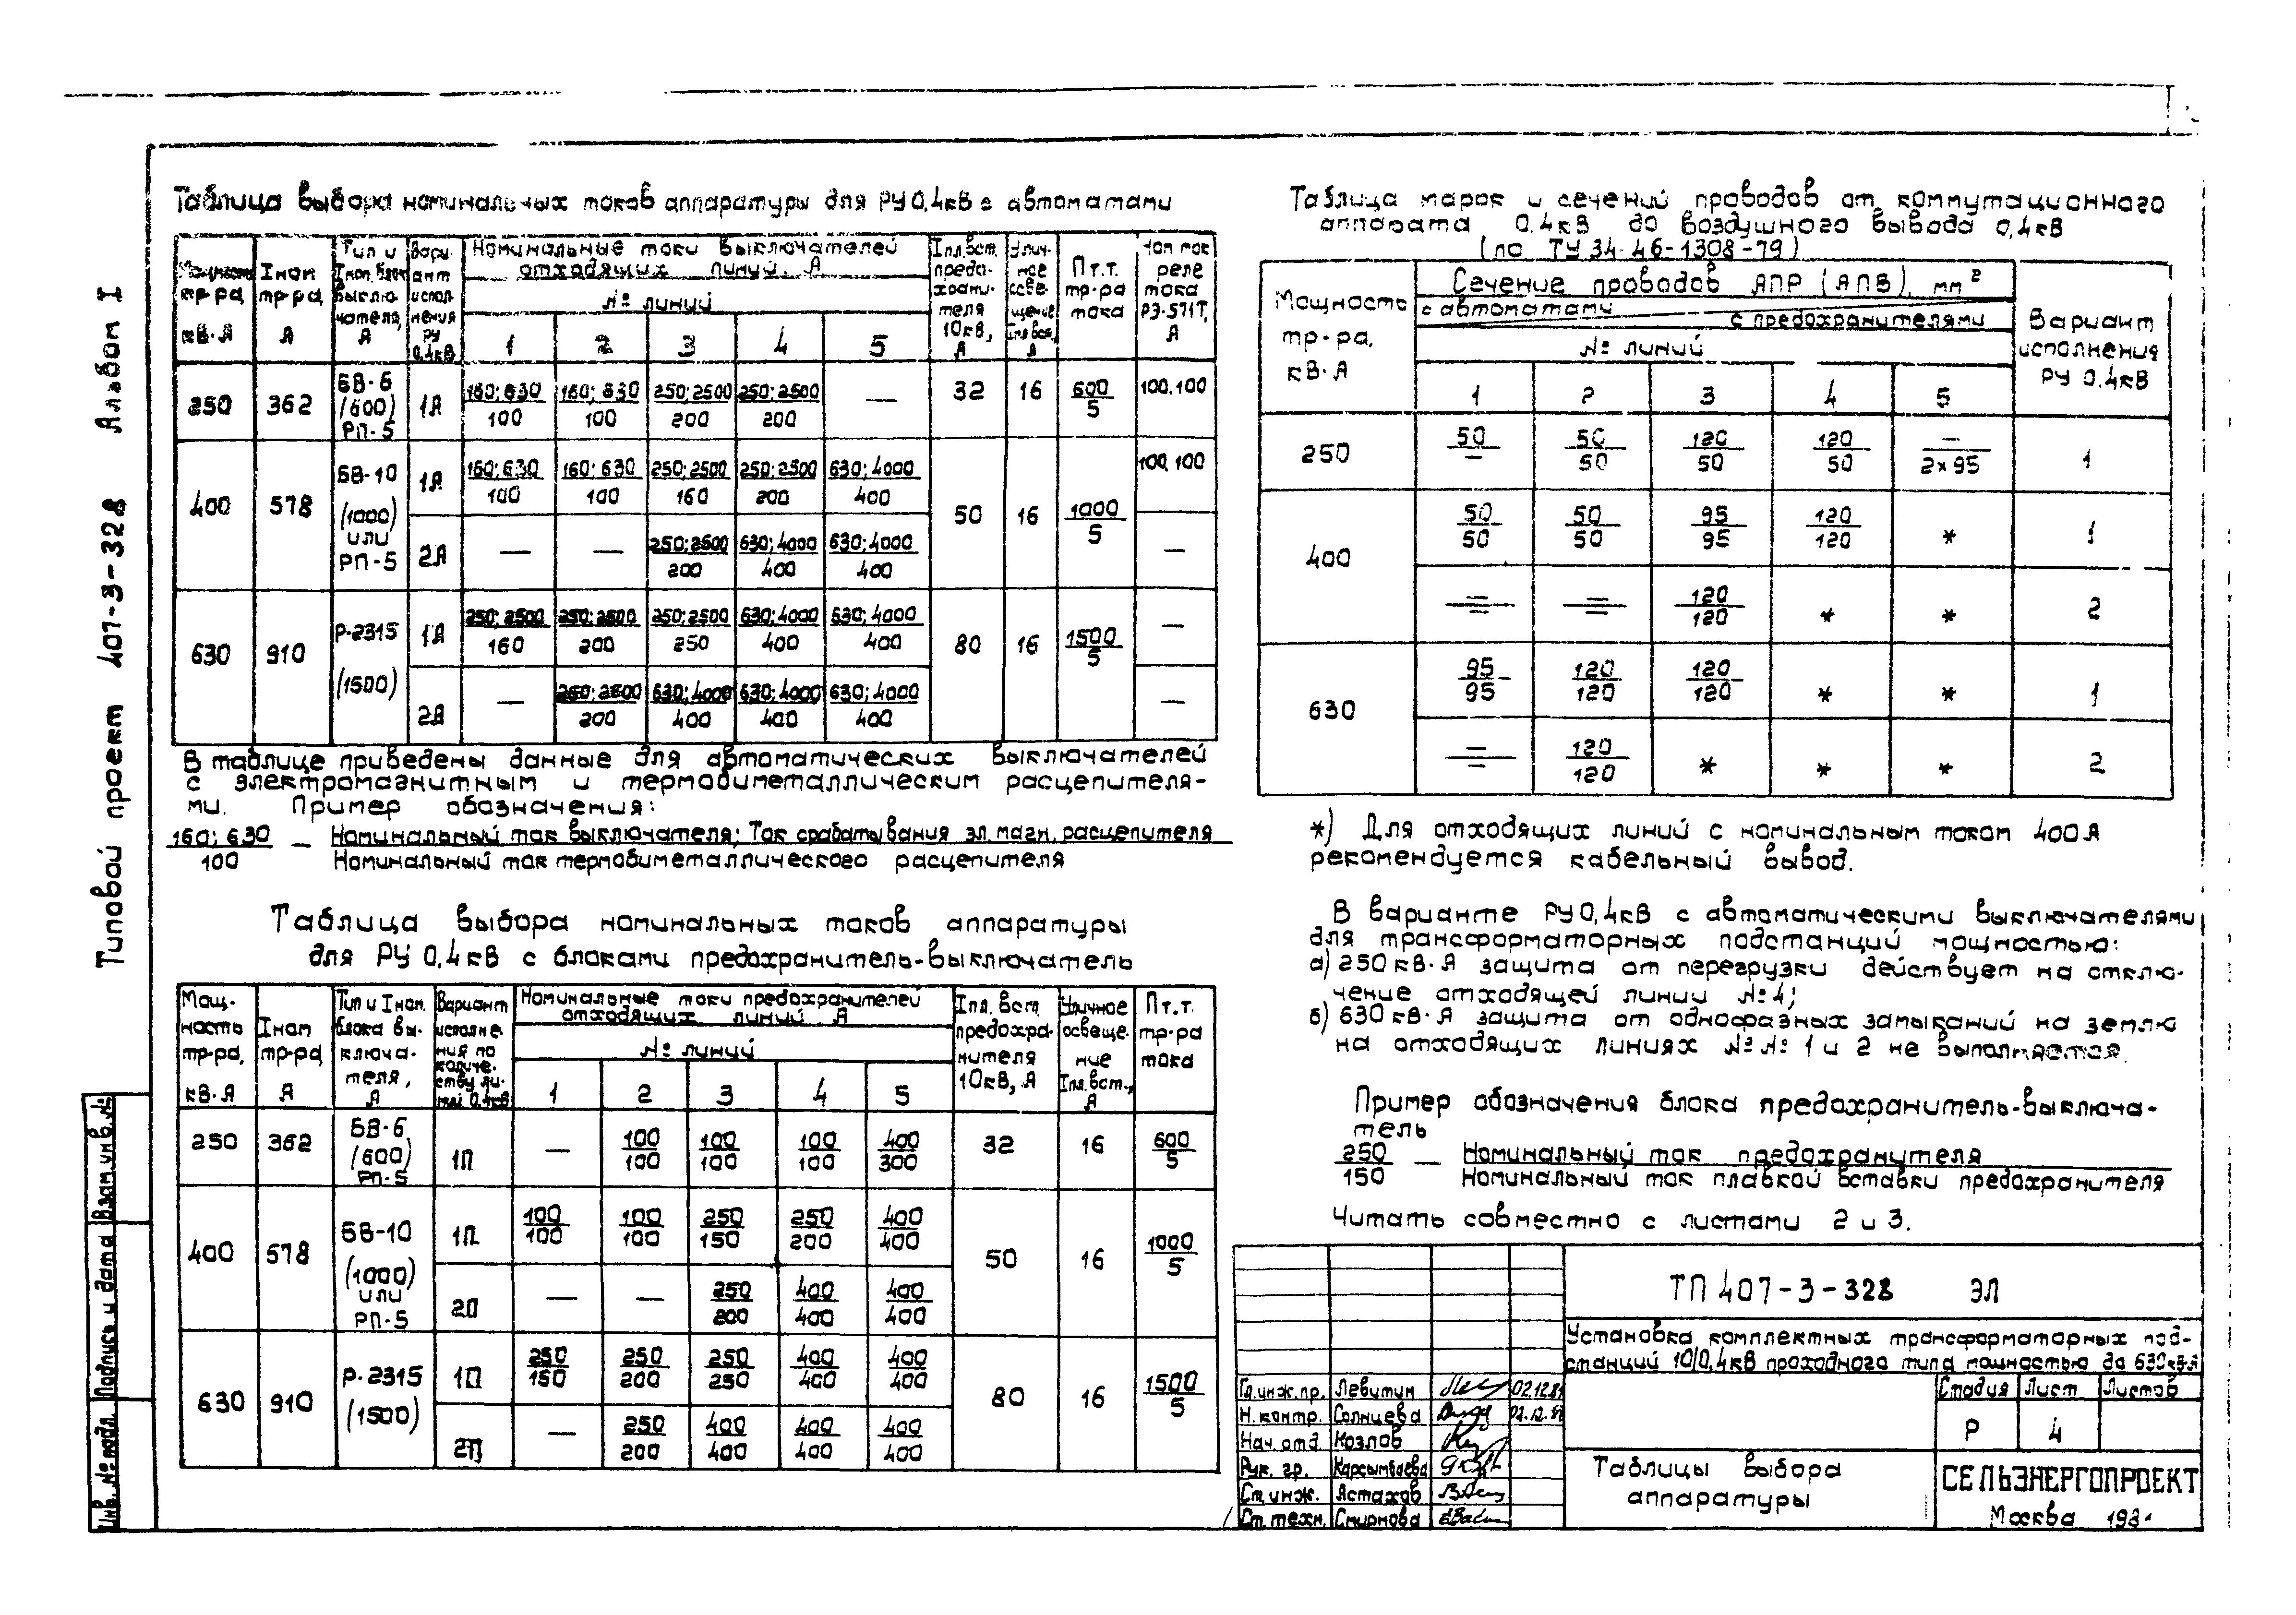 Типовой проект 407-3-328 Альбом I
Таблица выбора номинальных токов аппаратуры для РУ 0,4кВ с автоматами
Мощность тр-ра, кВ·А | Iном тр-ра, А | Тип и Iном. блок выключателя, А | Вариант исполнения РУ 0,4кВ | Номинальные токи выключателей отходящих линий, А | Iпл.вст. предохранителя 10кВ, А | Уличное освещение Iпл.вст., А | Пт.т. тр-ра тока | Ном ток реле тока РЭ-571Т, А
№ линий
1 2 3 4 5
250 | 362 | БВ-6 (600) РП-5 | 1А | 160; 630/100 | 160; 630/100 | 250; 2500/200 | 250; 2500/200 | — | 32 | 16 | 600/5 | 100,100
400 | 578 | БВ-10 (1000) или РП-5 | 1А | 160; 630/100 | 160; 630/100 | 250; 2500/160 | 250; 2500/200 | 630; 4000/400 | 50 | 16 | 1000/5 | 100,100
2А | — | — | 250; 2500/200 | 630; 4000/400 | 630; 4000/400 | —
630 | 910 | Р-2315 (1500) | 1А | 250; 2500/160 | 250; 2500/200 | 250; 2500/250 | 630; 4000/400 | 630; 4000/400 | 80 | 16 | 1500/5 | —
2А | — | 250; 2500/200 | 630; 4000/400 | 630; 4000/400 | 630; 4000/400 | —
В таблице приведены данные для автоматических выключателей
с электромагнитным и термобиметаллическим расцепителя-
ми. Пример обозначения:
160; 630/100 — Номинальный ток выключателя; Ток срабатывания эл.магн. расцепителя
Номинальный ток термобиметаллического расцепителя
Таблица выбора номинальных токов аппаратуры
для РУ 0,4кВ с блоками предохранитель-выключатель
Мощ-ность тр-ра, кВ·А | Iном тр-ра, А | Тип и Iном. блока вы-ключа-теля, А | Вариант исполне-ния по количе-ству ли-ний 0,4кВ | Номинальные токи предохранителей отходящих линий А | Iпл. вст. предохра-нителя 10кВ, А | Уличное освеще-ние Iпл.вст., А | Пт.т. тр-ра тока
№ линий
1 2 3 4 5
250 | 362 | БВ-6 (600) РП-5 | 1П | — | 100/100 | 100/100 | 100/100 | 400/300 | 32 | 16 | 600/5
400 | 578 | БВ-10 (1000) или РП-5 | 1П | 100/100 | 100/100 | 250/150 | 250/200 | 400/400 | 50 | 16 | 1000/5
2П | — | — | 250/200 | 400/400 | 400/400
630 | 910 | Р-2315 (1500) | 1П | 250/150 | 250/200 | 250/250 | 400/400 | 400/400 | 80 | 16 | 1500/5
2П | — | 250/200 | 400/400 | 400/400 | 400/400
Таблица марок и сечений проводов от коммутационного
аппарата 0.4кВ до воздушного вывода 0,4кВ
(по ТУ 34-46-1308-79)
Мощность тр-ра, кВ·А | Сечение проводов АПР (АПВ), мм² | Вариант исполнения РУ 0.4кВ
с автоматами
с предохранителями
№ линий
1 2 3 4 5
250 | 50/— | 50/50 | 120/50 | 120/50 | —/2×95 | 1
400 | 50/50 | 50/50 | 95/95 | 120/120 | * | 1
—/— | —/— | 120/120 | * | * | 2
630 | 95/95 | 120/120 | 120/120 | * | * | 1
—/— | 120/120 | * | * | * | 2
*) Для отходящих линий с номинальным током 400А
рекомендуется кабельный вывод.
В варианте РУ 0,4кВ с автоматическими выключателями
для трансформаторных подстанций мощностью:
а) 250 кВ·А защита от перегрузки действует на отклю-
чение отходящей линии №4;
б) 630 кВ·А защита от однофазных замыканий на землю
на отходящих линиях №№ 1 и 2 не выполняется.
Пример обозначения блока предохранитель-выключа-
тель
250/150 — Номинальный ток предохранителя
Номинальный ток плавкой вставки предохранителя
Читать совместно с листами 2 и 3.
ТП 407-3-328 ЭЛ
Установка комплектных трансформаторных под-
станций 10/0,4кВ проходного типа мощностью до 630кВ·А
Гл.инж.пр. Левитин 02.12.81
Н.контр. Солнцева 02.12.81
Нач.отд. Козлов
Рук. гр. Карсымбаева
Ст.инж. Астахов
Ст.техн. Смирнова
Стадия Лист Листов
Р 4
Таблицы выбора
аппаратуры
СЕЛЬЭНЕРГОПРОЕКТ
Москва
Взам.инв.№
Подпись и дата
Инв. № подл.